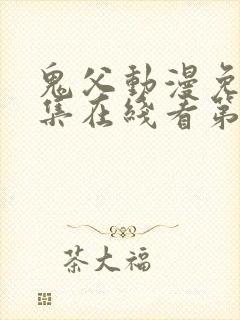 鬼父動漫免
集在綫看第
茶大福